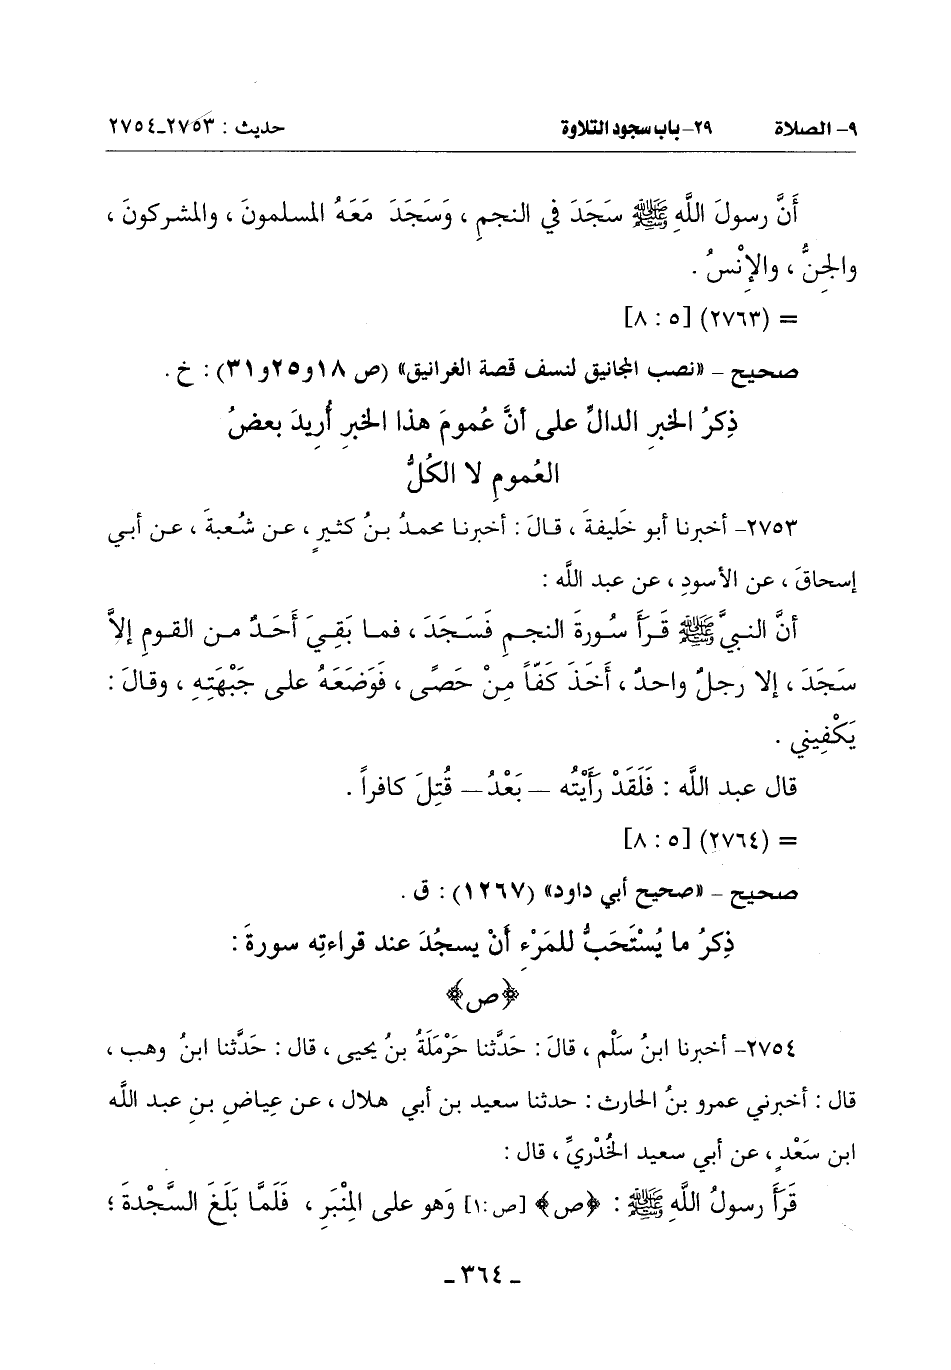 ٩- الصلاة ٢٩- باب سجود التلاوة حديث : ٢٧٥٣-٢٧٥٤
أَنَّ رسولَ اللَّهِ ﷺ سَجَدَ في النجمِ ، وَسَجَدَ مَعَهُ المسلمونَ ، والمشركونَ ،
والجنُّ ، والإنْسُ .
= (٢٧٦٣) [٥ : ٨]
صحيح – «نصب المجانيق لنسف قصة الغرانيق» (ص ١٨ و٢٥ و٣١) : خ .
ذِكرُ الخبرِ الدالِّ على أنَّ عُمومَ هذا الخبرِ أُريدَ بعضُ
العُمومِ لا الكُلُّ
٢٧٥٣- أخبرنا أبو خَليفةَ ، قالَ : أخبرنا محمدُ بنُ كثيرٍ ، عن شُعبةَ ، عن أبي
إسحاقَ ، عن الأسودِ ، عن عبد اللَّه :
أنَّ النبيَّ ﷺ قَرَأَ سُورةَ النجمِ فَسَجَدَ ، فما بَقِيَ أَحَدٌ من القومِ إلاَّ
سَجَدَ ، إلا رجلٌ واحدٌ ، أَخَذَ كَفّاً مِنْ حَصًى ، فَوَضَعَهُ على جَبْهَتِهِ ، وقالَ :
يَكْفِيني .
قال عبد اللَّه : فَلَقَدْ رَأَيْتُه – بَعْدُ – قُتِلَ كافراً .
= (٢٧٦٤) [٥ : ٨]
صحيح – «صحيح أبي داود» (١٢٦٧) : ق .
ذِكرُ ما يُسْتَحَبُّ للمَرْءِ أَنْ يسجُدَ عند قراءتِه سورةَ :
﴿ص﴾
٢٧٥٤- أخبرنا ابنُ سَلْم ، قالَ : حَدَّثنا حَرْمَلَةُ بنُ يحيى ، قال : حَدَّثنا ابنُ وهب ،
قال : أخبرني عمرو بنُ الحارث : حدثنا سعيد بن أبي هلال ، عن عِياضِ بنِ عبد اللَّه
ابن سَعْدٍ ، عن أبي سعيد الخُدْريِّ ، قال :
قَرَأَ رسولُ اللَّهِ ﷺ : ﴿ص﴾ [ص :١] وَهو على المِنْبَرِ ، فَلَمَّا بَلَغَ السَّجْدةَ ؛
– ٣٦٤ –